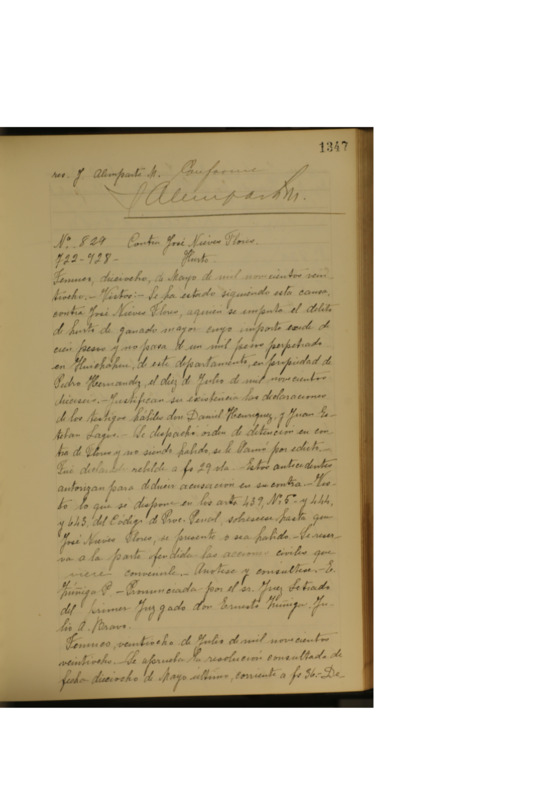 1347
rez. J. Alemparte M. Conforme
Alemparte M.
No. 829 Contra José Nieves Flores.
723-728- Hurto.
Temuco, dieciocho, de Mayo de mil novecientos vein
tiocho.- Vistos:- Se ha estado siguiendo esta causa,
contra José Nieves Flores, a quien se imputa el delito
de hurto de ganado mayor cuyo importe excede de
cien pesos y no pasa de un mil pesos perpetrado
en, de este departamento, en propiedad de
Pedro Hernandez, el diez de Julio de mil novecientos
dieciseis.- Justifican su existencia las declaraciones
de los testigos hábiles don Daniel Henriquez, y Juan Es-
teban Lagos.- Se despachó orden de detención en con
tra de Flores y no siendo habido se le llamó por edictos.-
Fué declarado rebelde a fs 29 vta.- Estos antecedentes
autorizan para deducir acusación en su contra.- Vis-
to lo que se dispone en los arts 439, No. 5o. y 444,
y 643, del Código de Proc. Penal, sobreseese hasta que
José Nieves Flores, se presente o sea habido.- Se reser-
va a la parte ofendida las acciones civiles que
viere convenirle.- Anótese y consúltese.- E.
Zúñiga P.- Pronunciada por el sr. Juez Letrado
del primer Juzgado don Ernesto Zúñiga. Ju-
lio A. Bravo.
Temuco, veintiocho de Julio de mil novecientos
veintiocho.- Se aprueba la resolución consultada de
fecha dieciocho de Mayo último, corriente a fs 36.- De